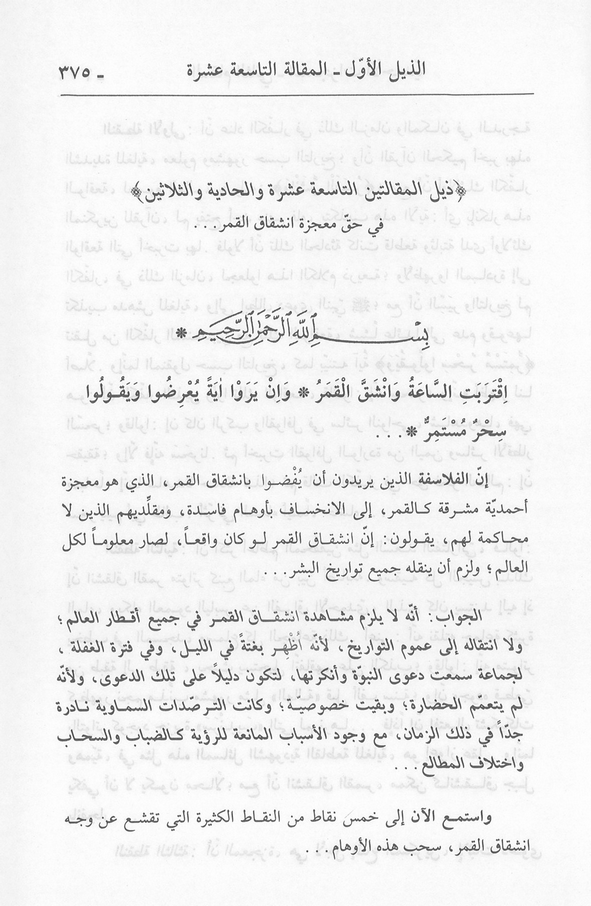 الذيل الأوّل ـ المقالة التاسعة عشرة
ـ ٣٧٥
﴿ذيل المقالتين التاسعة عشرة والحادية والثلاثين﴾
في حقّ معجزة انشقاق القمر...
بِسْمِ اللهِ الرَّحْمٰنِ الرَّحِيمِ *
اِقْتَرَبَتِ السَّاعَةُ وَانْشَقَّ الْقَمَرُ * وَاِنْ يَرَوْا اٰيَةً يُعْرِضُوا وَيَقُولُوا
سِحْرٌ مُسْتَمِرٌّ * ...
إنّ الفلاسفة الذين يريدون أن يُفْضوا بانشقاق القمر، الذي هو معجزة
أحمديّة مشرقة كالقمر، إلى الانخساف بأوهام فاسدة، ومقلّديهم الذين لا
محاكمة لهم، يقولون: إنّ انشقاق القمر لو كان واقعاً، لصار معلوماً لكل
العالم؛ ولزم أن ينقله جميع تواريخ البشر...
الجواب: أنّه لا يلزم مشاهدة انشقاق القمر في جميع أقطار العالم؛
ولا انتقاله إلى عموم التواريخ، لأنّه أُظْهِر بغتةً في الليل، وفي فترة الغفلة،
لجماعة سمعت دعوى النبوّة وأنكرتها، لتكون دليلاً على تلك الدعوى، ولأنّه
لم يتعمّم الحضارة؛ وبقيت خصوصيّة؛ وكانت الترصّدات السماوية نادرة
جدّاً في ذلك الزمان، مع وجود الأسباب المانعة للرؤية كالضباب والسحاب
واختلاف المطالع...
واستمع الآن إلى خمس نقاط من النقاط الكثيرة التي تقشع عن وجه
انشقاق القمر، سحب هذه الأوهام...